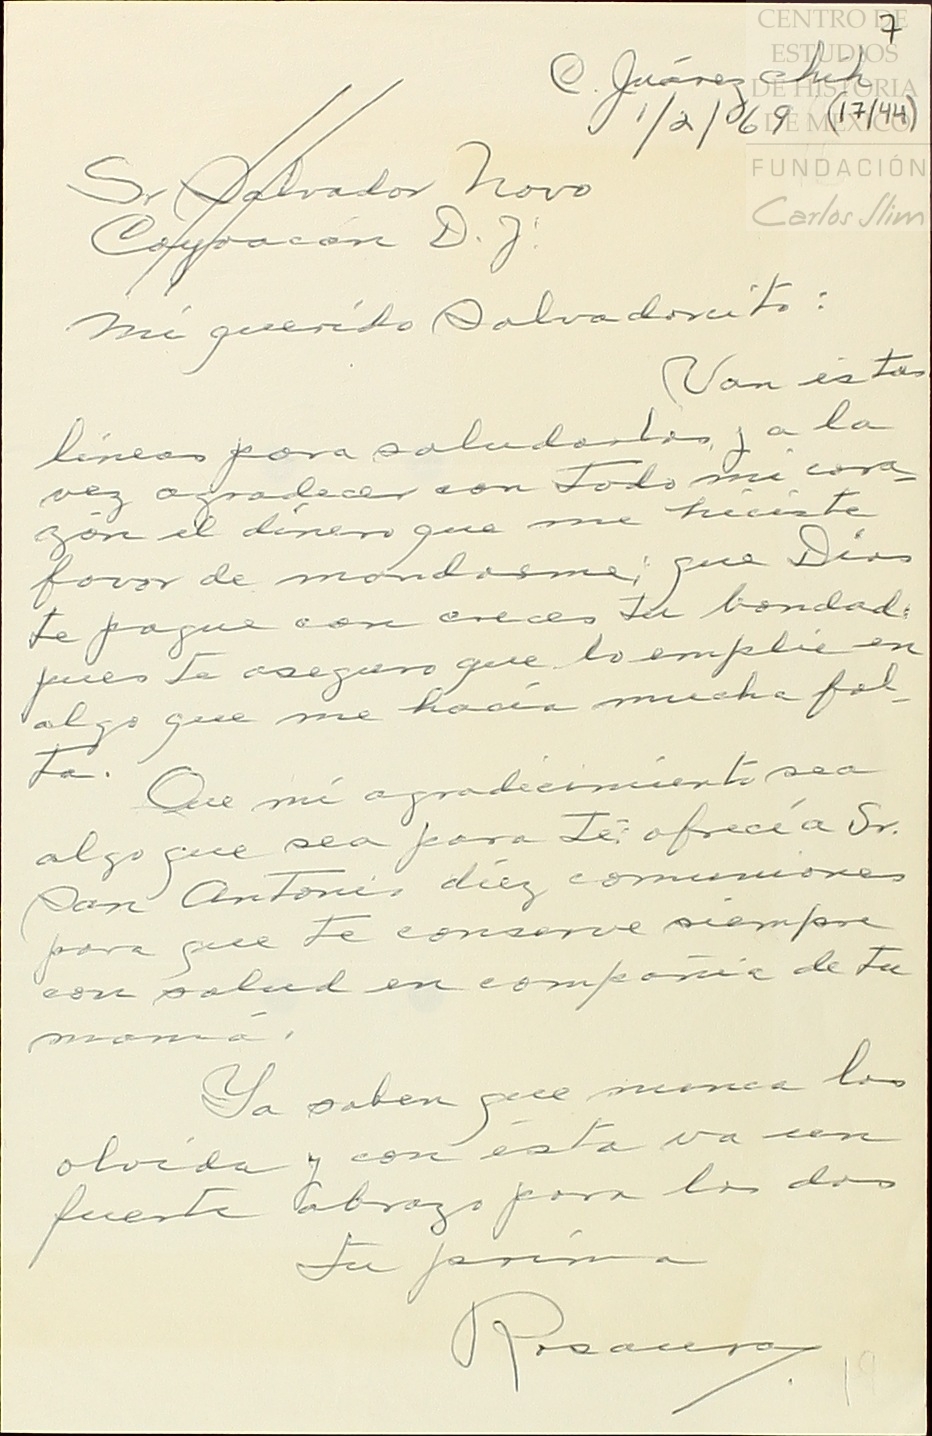 CENTRO DE
ESTUDIOS
DE HISTORIA
DE MEXICO
FUNDACIÓN
Carlos Slim
7
C. Juárez Chih
1/2/69 (17/44)
Sr Salvador Novo
Coyoacán D. F.
Mi querido Salvadorcito:
Van éstas
líneas para saludarlos, y a la
vez agradecer con todo mi cora-
zón el dinero que me hiciste
favor de mandarme; que Dios
te pague con creces tu bondad;
pues te aseguro que lo emplie en
algo que me hacía mucha fal-
ta.
Que mi agradecimiento sea
algo que sea para tí: ofrecí a Sr.
San Antonio diez comuniones
para que te conserve siempre
con salud en compañia de tu
mamá.
Ya saben que nunca los
olvida y con ésta va un
fuerte abrazo para los dos
tu prima
Rosaura.
19